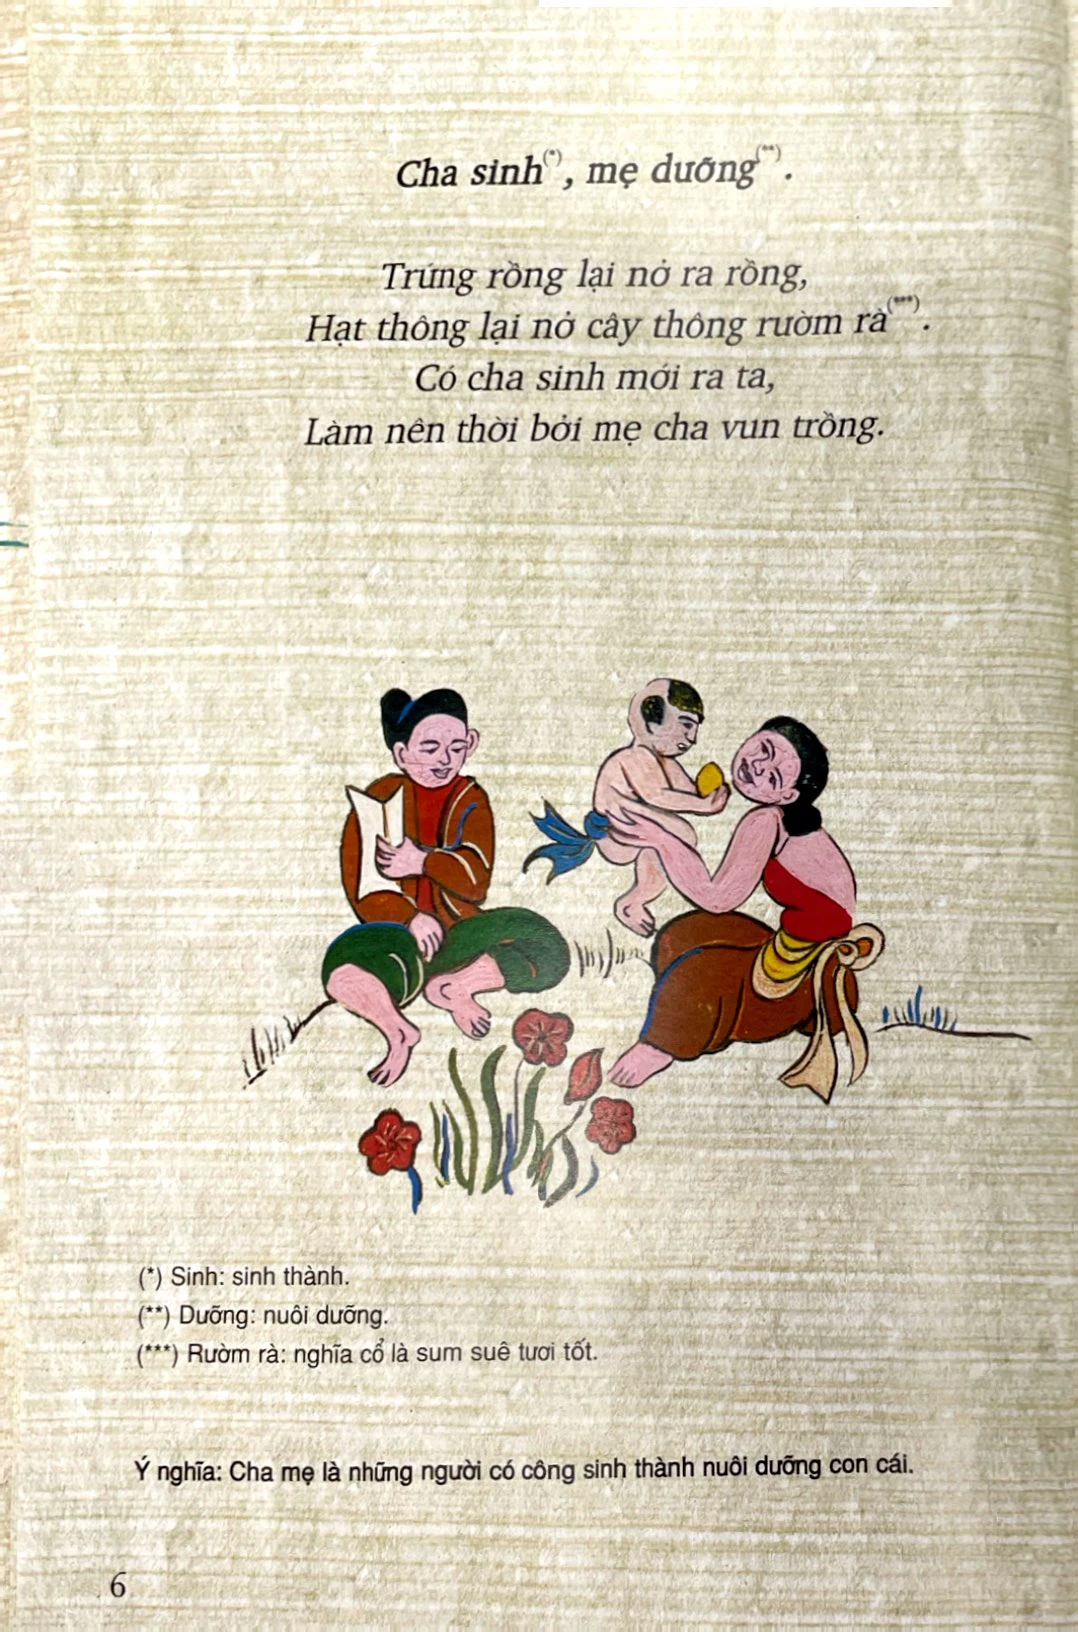 Cha sinh(*), mẹ dưỡng(**).
Trứng rồng lại nở ra rồng,
Hạt thông lại nở cây thông rườm rà(***).
Có cha sinh mới ra ta,
Làm nên thời bởi mẹ cha vun trồng.
(*) Sinh: sinh thành.
(**) Dưỡng: nuôi dưỡng.
(***) Rườm rà: nghĩa cổ là sum suê tươi tốt.
Ý nghĩa: Cha mẹ là những người có công sinh thành nuôi dưỡng con cái.
6